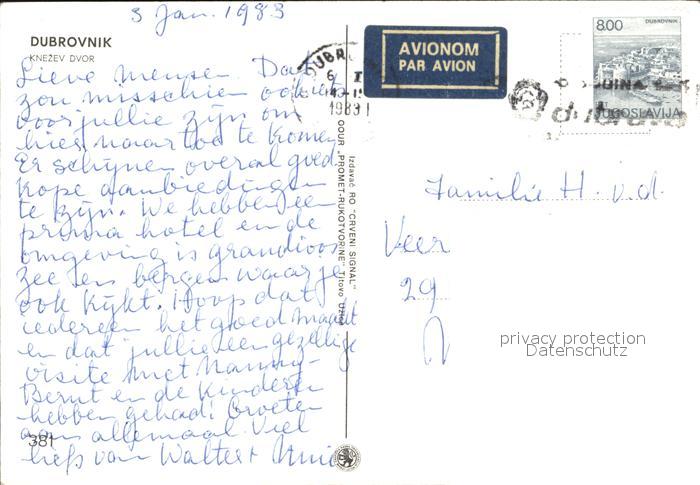 3 Jan. 1983
DUBROVNIK
KNEŽEV DVOR
Lieve mensen. Dat
zou misschien ook iets
voor jullie zijn om
hier naar toe te komen
Er schijnen overal goed-
kope aanbiedingen
te zijn. We hebben een
prima hotel en de
omgeving is grandioos
zee en bergen waar je
ook kijkt. Hoop dat
iedereen het goed maakt
en dat jullie een gezellige
visite met Nanny-
Bernt en de kinderen
hebben gehad! Groeten
aan allemaal. Viel
liefs van Walter +
381
OOUR „PROMET-RUKOTVORINE" Titovo Užice
Izdavač RO "CRVENI SIGNAL"
AVIONOM
PAR AVION
DUBR
6 I
1983
8.00
DUBROVNIK
JUGOSLAVIJA
Familie H. v.d.
Veer
29
privacy protection
Datenschutz